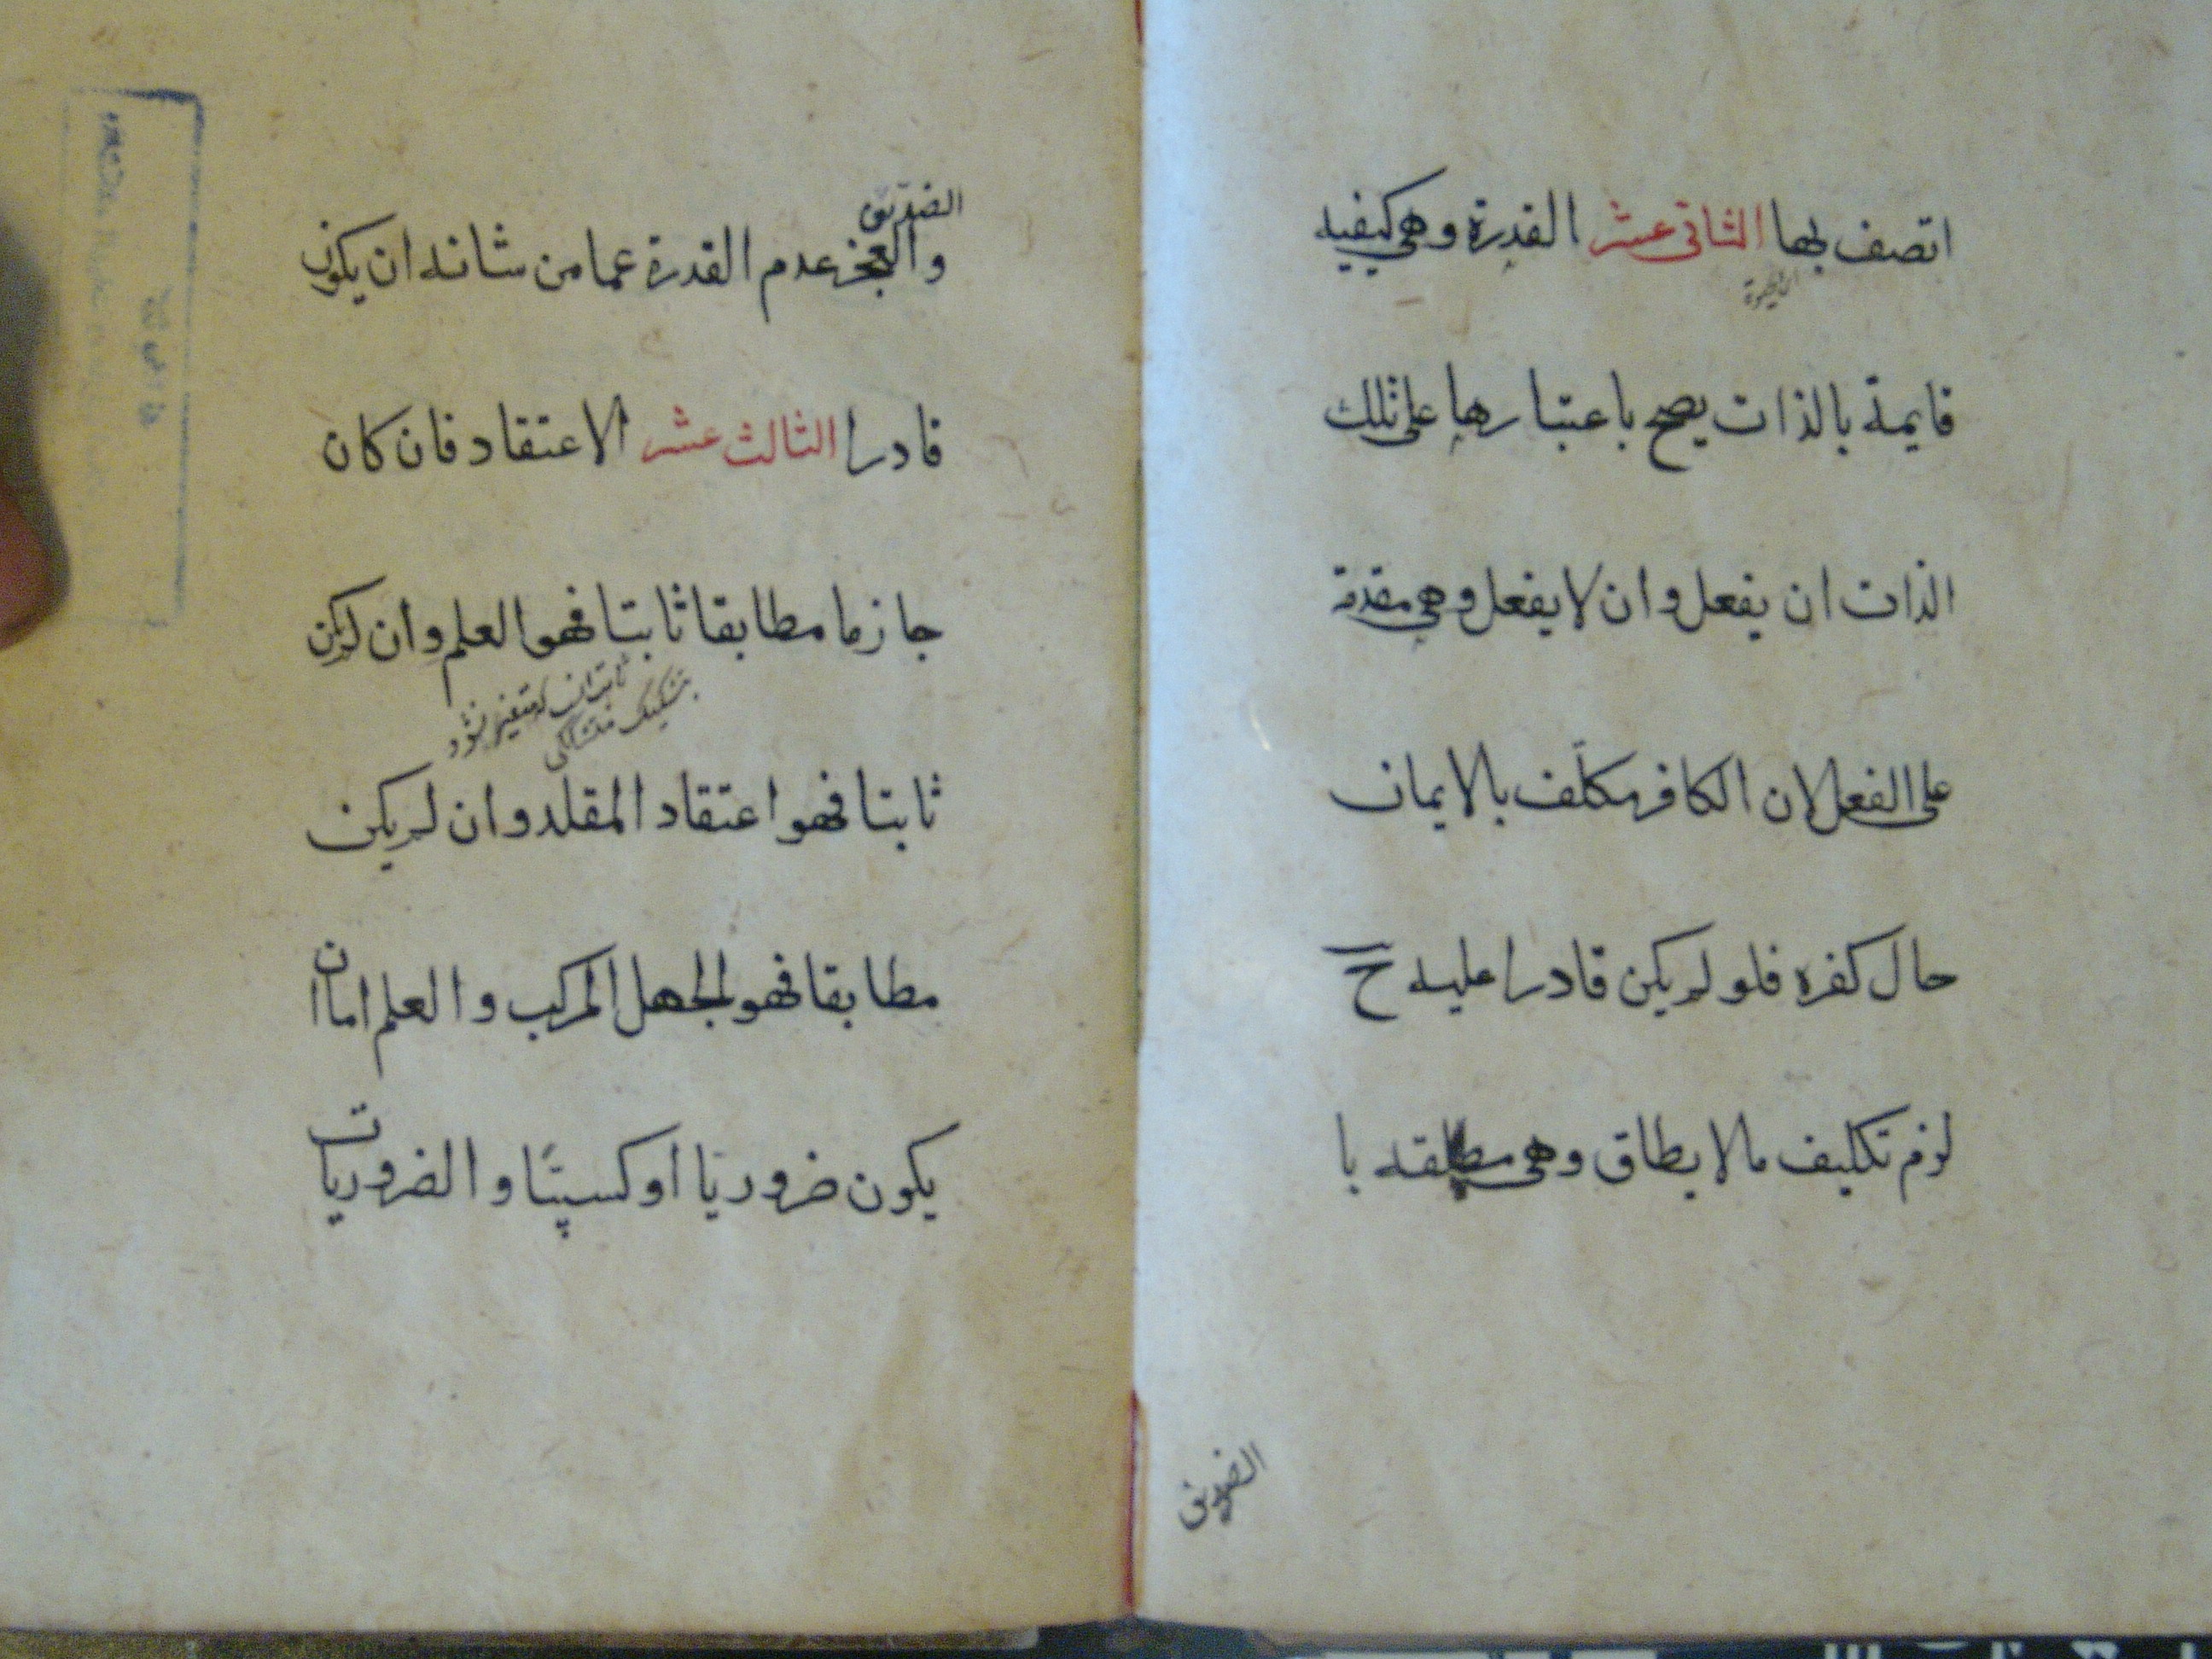 اتصف بها الثانی عشر القدرة وهی کیفیه
قایمة بالذات یصح باعتبارها علی تلک
الذات ان یفعل وان لا یفعل وهی مقدمة
علی الفعل لان الکافر مکلّف بالایمان
حال کفره فلو لم یکن قادرا علیه ح
لزم تکلیف ما لا یطاق وهی متعلقه با
الضدین
الضدین
والعجز عدم القدرة عما من شانه ان یکون
قادرا الثالث عشر الاعتقاد فان کان
جازما مطابقا ثابتا فهو العلم وان لم یکن
ثابتا فهو اعتقاد المقلد وان لم یکن
مطابقا فهو الجهل المرکب والعلم اما ان
یکون ضروریا او کسبیًا والضروریات